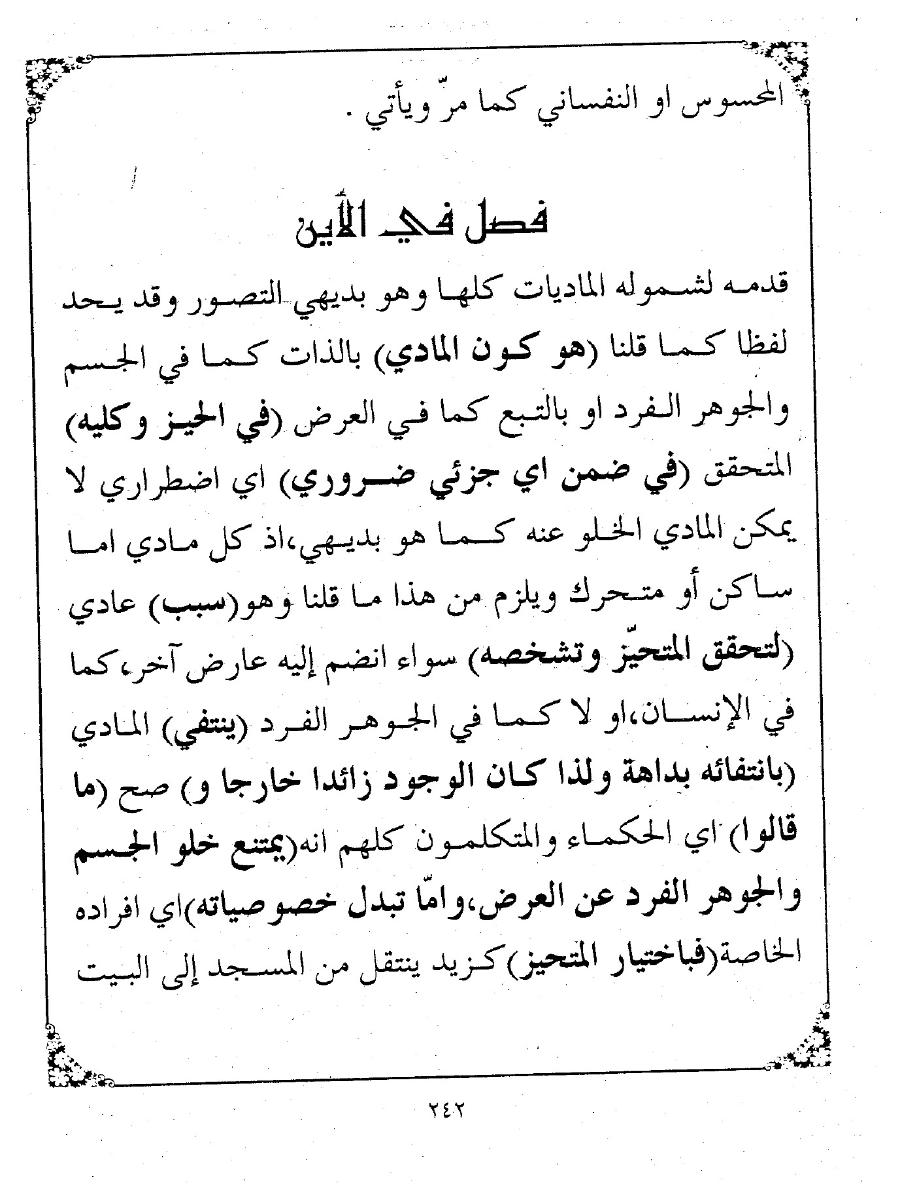 المحسوس او النفساني كما مرّ ويأتي .
فصل في الأين
قدمه لشموله الماديات كلها وهو بديهي التصور وقد يحد
لفظا كما قلنا (هو كون المادي) بالذات كما في الجسم
والجوهر الفرد او بالتبع كما في العرض (في الحيز وكليه)
المتحقق (في ضمن اي جزئي ضروري) اي اضطراري لا
يمكن المادي الخلو عنه كما هو بديهي،اذ كل مادي اما
ساكن أو متحرك ويلزم من هذا ما قلنا وهو(سبب) عادي
(لتحقق المتحيّز وتشخصه) سواء انضم إليه عارض آخر،كما
في الإنسان،او لا كما في الجوهر الفرد (ينتفي) المادي
(بانتفائه بداهة ولذا كان الوجود زائدا خارجا و) صح (ما
قالوا) اي الحكماء والمتكلمون كلهم انه(يمتنع خلو الجسم
والجوهر الفرد عن العرض،وامّا تبدل خصوصياته)اي افراده
الخاصة(فباختيار المتحيز)كزيد ينتقل من المسجد إلى البيت
٢٤٢